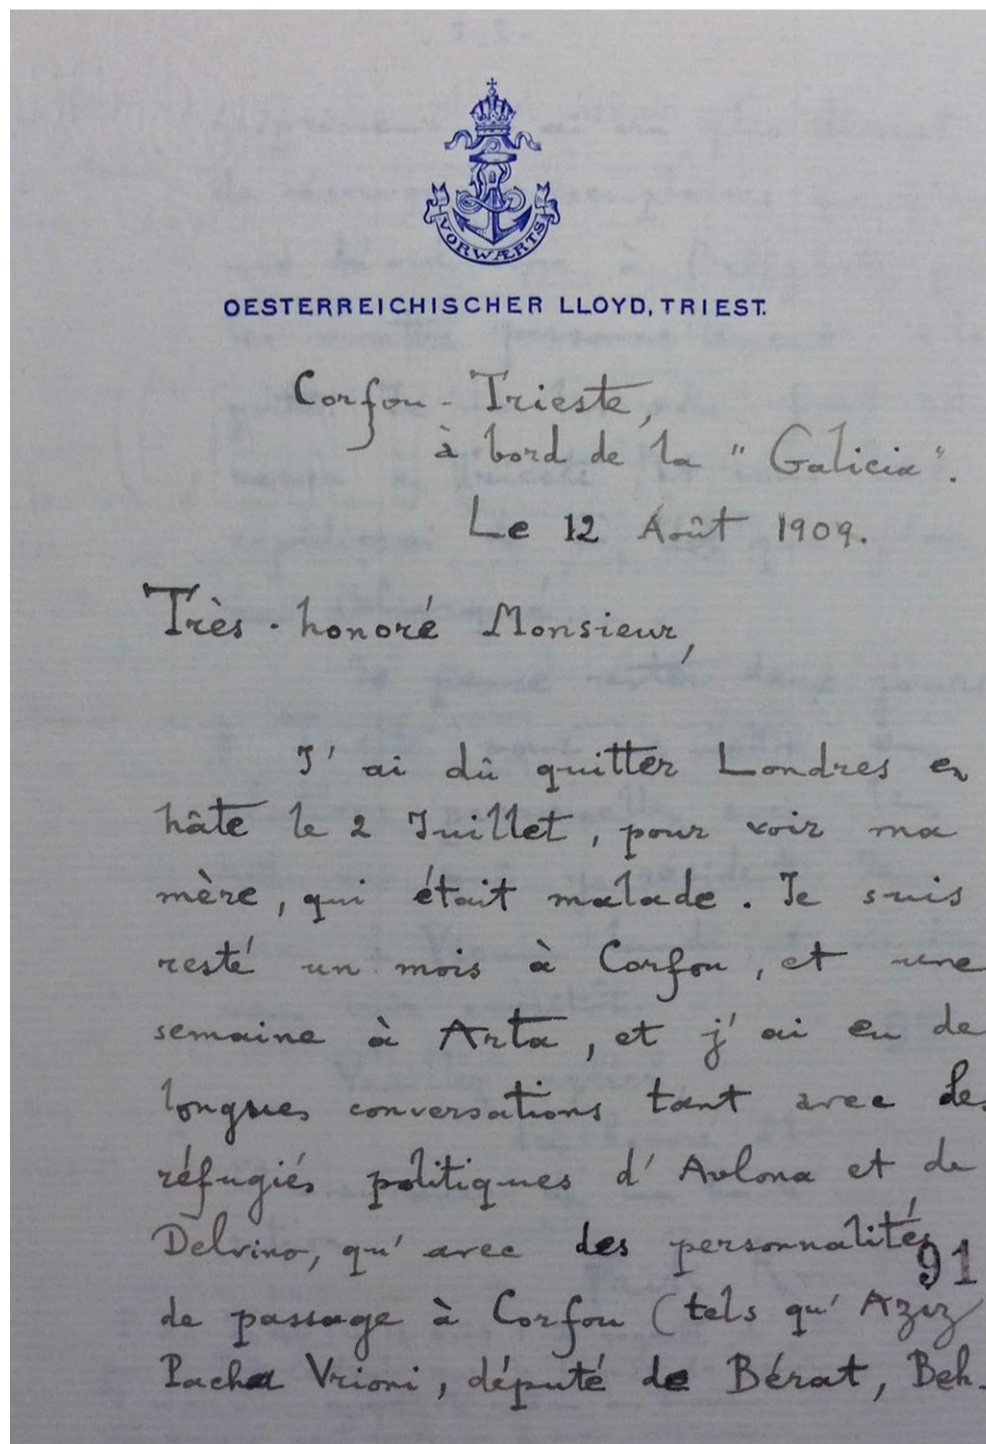 VORWÆRTS
OESTERREICHISCHER LLOYD, TRIEST.
Corfou - Trieste,
à bord de la "Galicia".
Le 12 Août 1909.
Très-honoré Monsieur,
J'ai dû quitter Londres en
hâte le 2 Juillet, pour voir ma
mère, qui était malade. Je suis
resté un mois à Corfou, et une
semaine à Arta, et j'ai eu de
longues conversations tant avec des
réfugiés politiques d'Avlona et de
Delvino, qu'avec des personnalités
91
de passage à Corfou (tels qu'Aziz
Pacha Vrioni, député de Bérat, Beh-